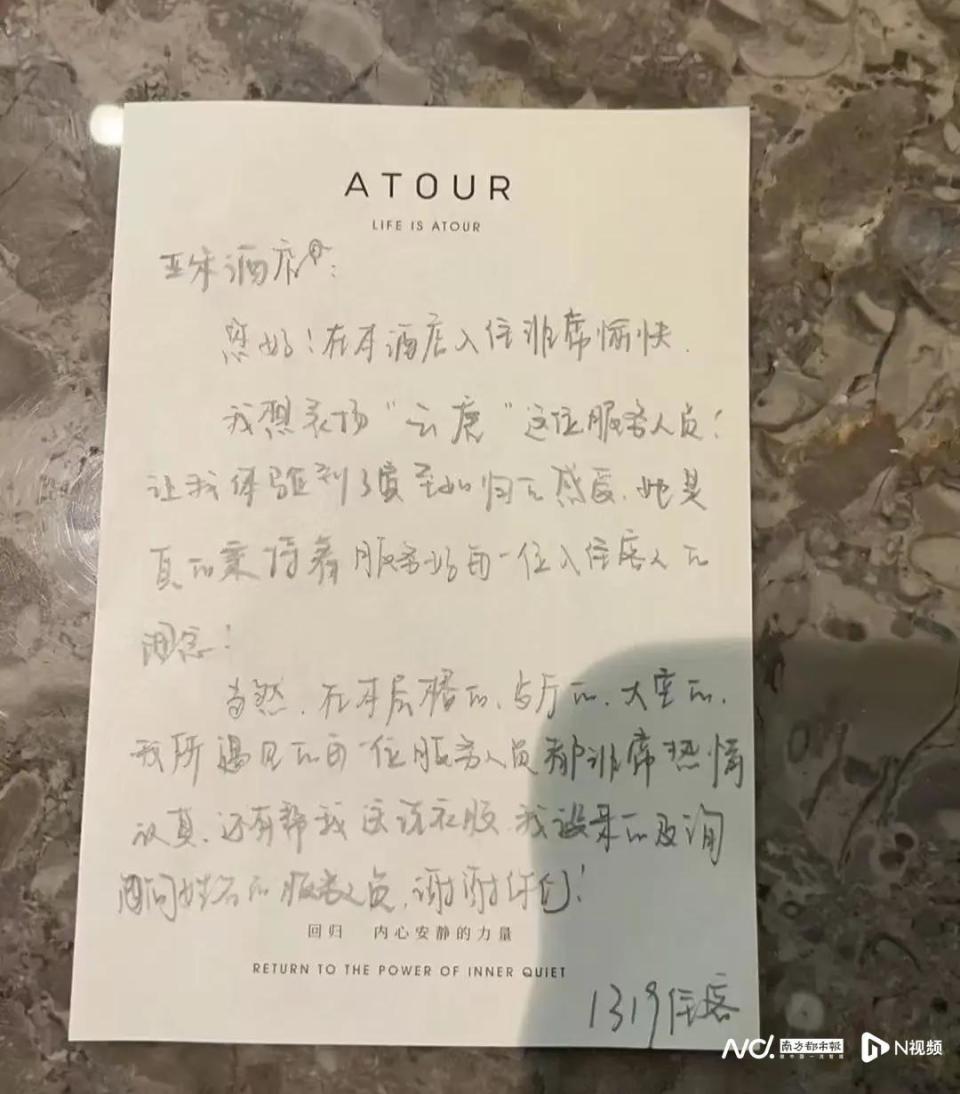 ATOUR
LIFE IS ATOUR
亚朵酒店:
您好!在本酒店入住非常愉快.
我想表扬“云虎”这位服务人员!
让我体验到了宾至如归的感受.她是
真的秉持着服务好每一位入住客人的
理念!
当然.在本层楼的、与厅的、大堂的、
我所遇见的每一位服务人员都非常热情
认真.还有帮我送洗衣服.我没来的及询
问姓名的服务人员.谢谢你们!
回归 内心安静的力量
RETURN TO THE POWER OF INNER QUIET
1319住客
N视频
南方都市报